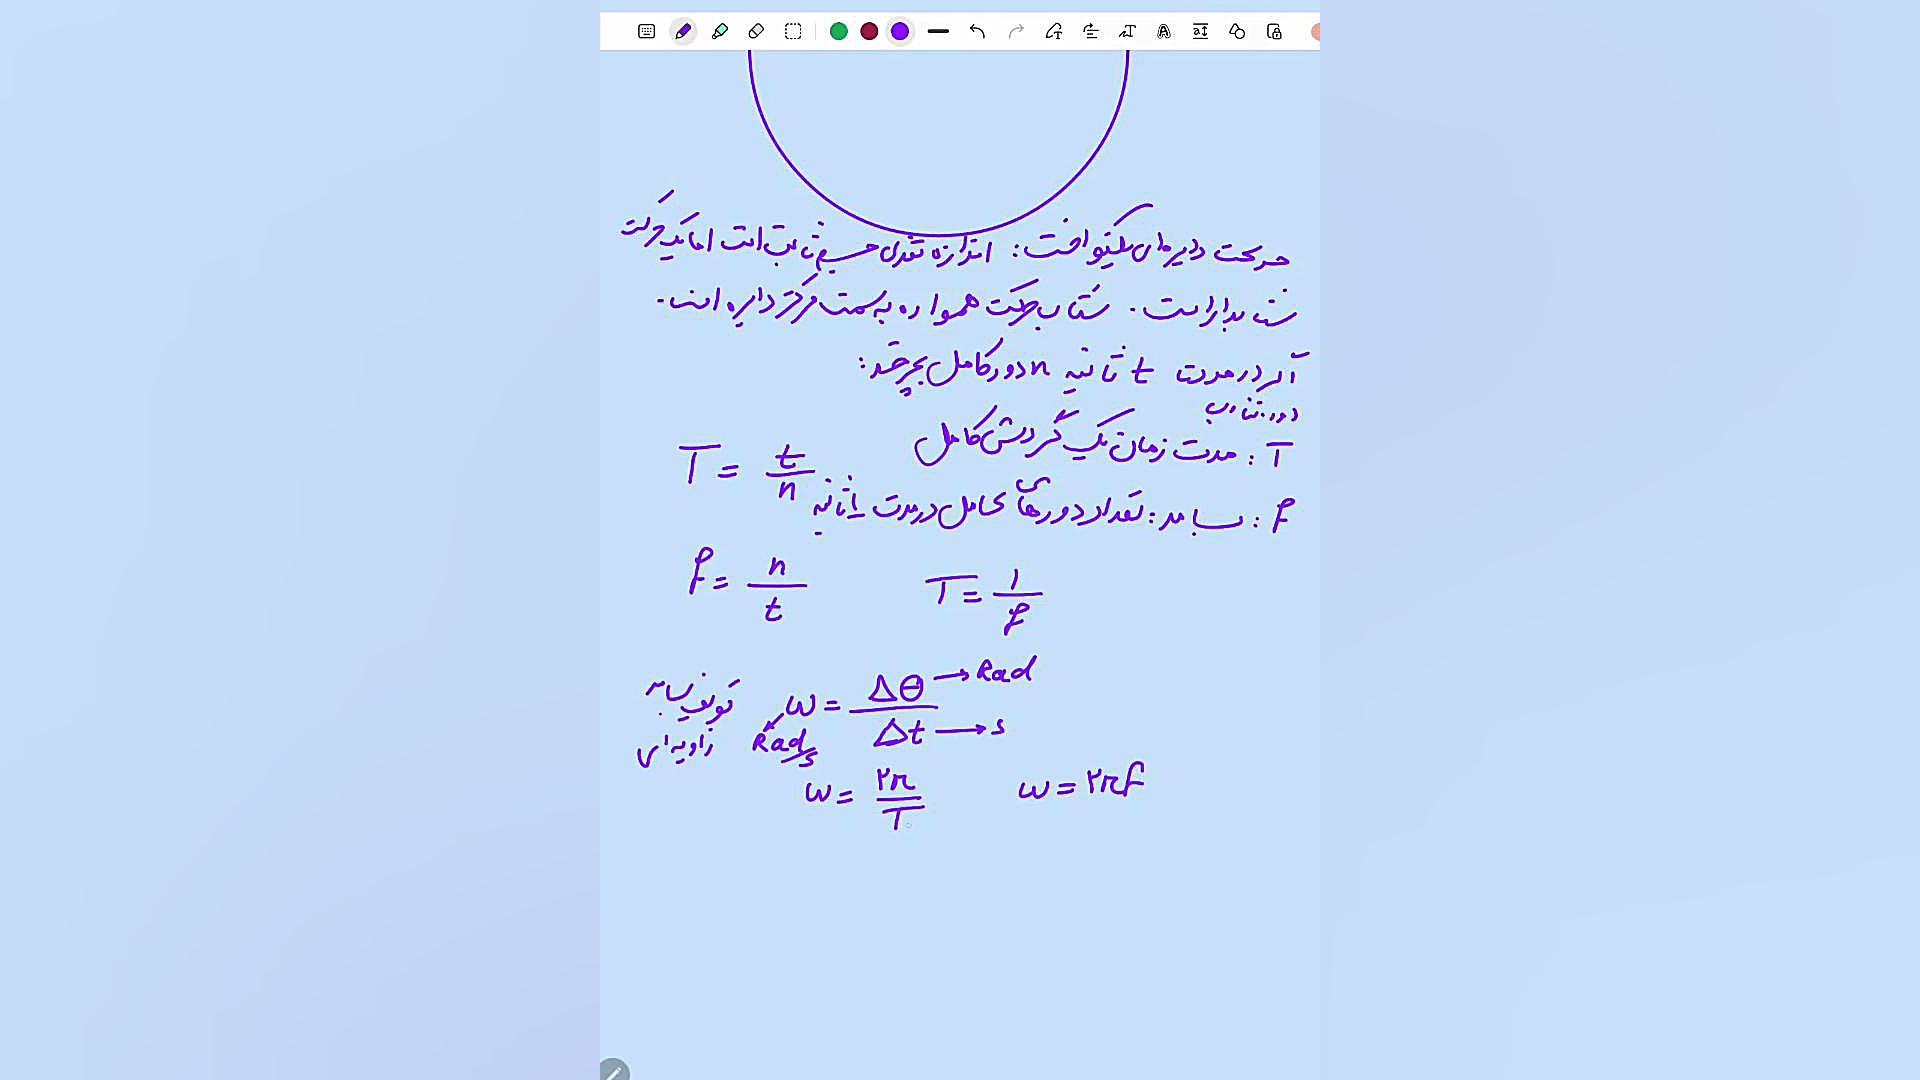 حرکت دایره‌ای یکنواخت: اندازه تندی جسم ثابت است اما یک حرکت
شتابدار است. شتاب حرکت همواره به سمت مرکز دایره است.
اگر در مدت t ثانیه n دور کامل بچرخد:
دوره تناوب
T: مدت زمان یک گردش کامل
T = t/n
f: بسامد: تعداد دورهای کامل در مدت ۱ ثانیه
f = n/t T = ۱/f
تعریف بسامد زاویه‌ای
ω = Δθ/Δt
→ Rad
→ s
Rad/s
ω = ۲π/T ω = ۲πf